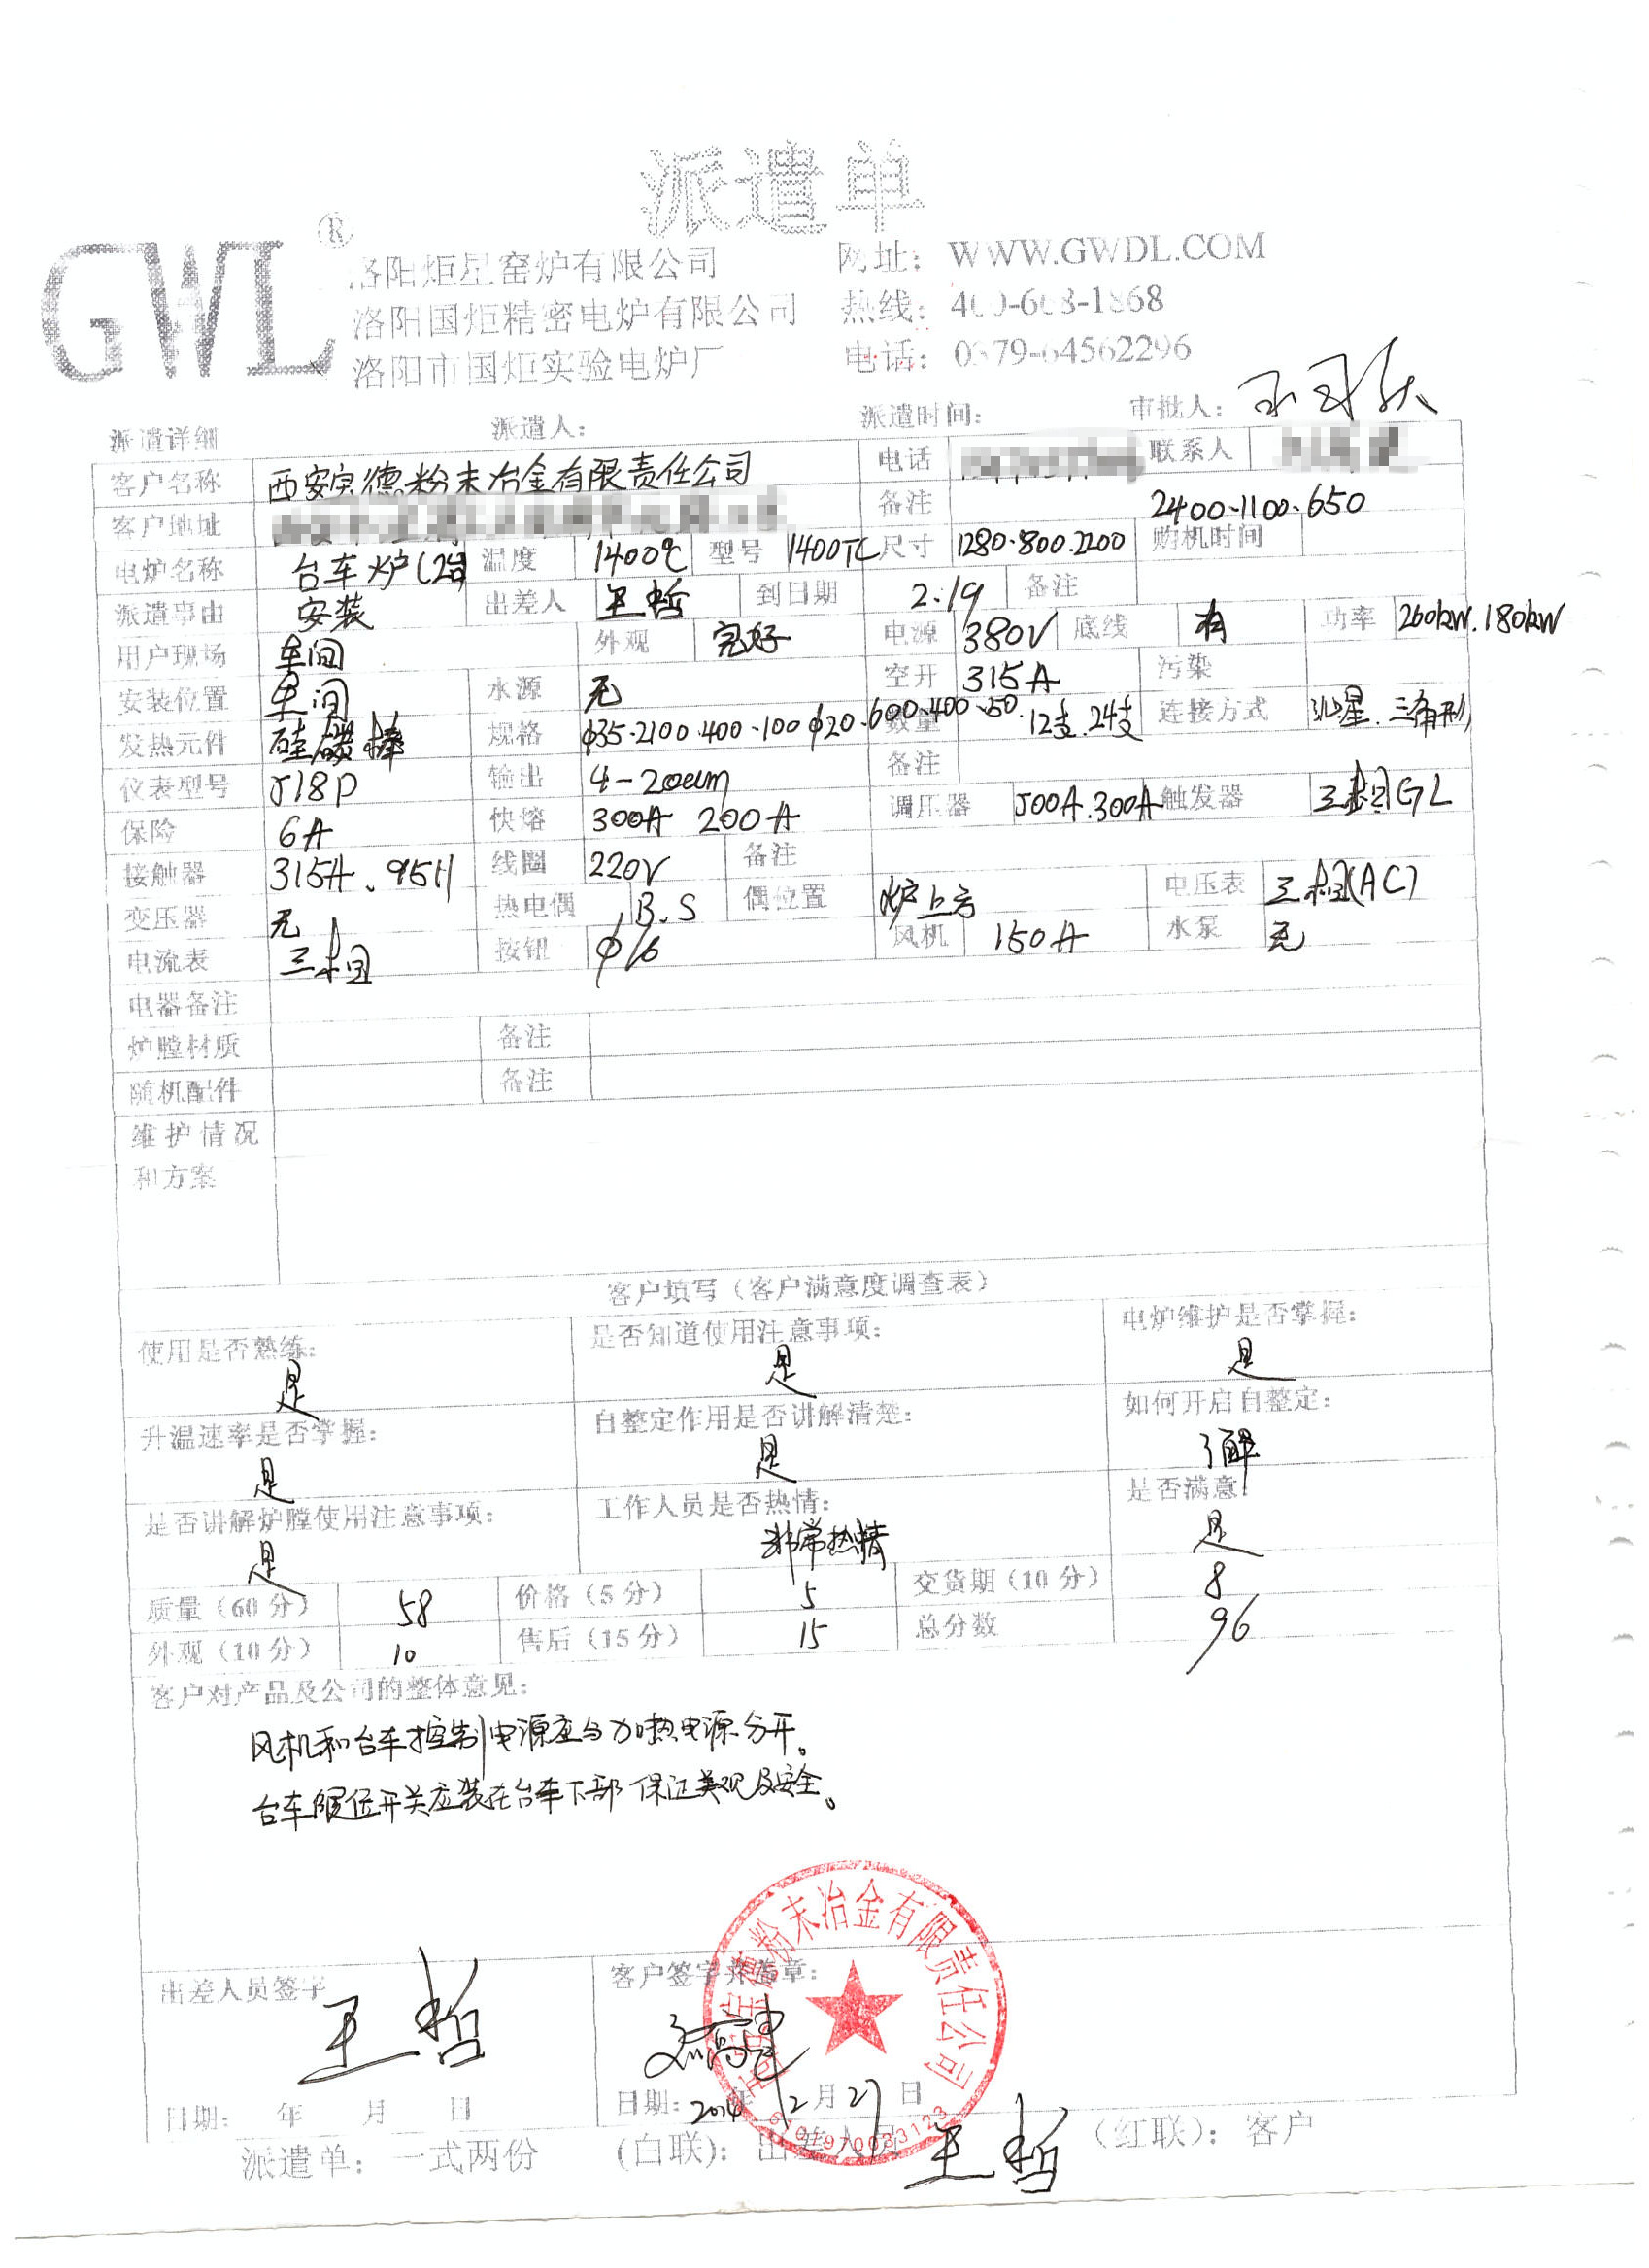 派遣单
GWL®
洛阳炬星窑炉有限公司 网址: WWW.GWDL.COM
洛阳国炬精密电炉有限公司 热线: 400-668-1868
洛阳市国炬实验电炉厂 电话: 0379-64562296
派遣详细 派遣人: 派遣时间: 审批人:
客户名称 西安宝德粉末冶金有限责任公司 电话 联系人
客户地址 备注 2400·1100·650
电炉名称 台车炉(2台) 温度 1400℃ 型号 1400TC 尺寸 1280·800·2200 购机时间
派遣事由 安装 出差人 王哲 到日期 2.19 备注
用户现场 车间 外观 完好 电源 380V 底线 有 功率 260kW.180kW
安装位置 车间 水源 无 空开 315A 污染
发热元件 硅碳棒 规格 φ35·2100·400·100 φ20·600·400·50 数量 12支.24支 连接方式 星.三角形
仪表型号 J18P 输出 4-20 备注
保险 6A 快熔 300A 200A 调压器 500A.300A 触发器 三相GL
接触器 315A、95A 线圈 220V 备注
变压器 无 热电偶 B.S 偶位置 炉上方 电压表 三相(AC)
电流表 三相 按钮 φ16 风机 150A 水泵 无
电器备注
炉膛材质 备注
随机配件 备注
维护情况
和方案
客户填写(客户满意度调查表)
使用是否熟练: 是 是否知道使用注意事项: 是 电炉维护是否掌握: 是
升温速率是否掌握: 是 自整定作用是否讲解清楚: 是 如何开启自整定: 了解
是否讲解炉膛使用注意事项: 是 工作人员是否热情: 非常热情 是否满意: 是
质量(60分) 58 价格(5分) 5 交货期(10分) 8
外观(10分) 10 售后(15分) 15 总分数 96
客户对产品及公司的整体意见:
风机和台车控制电源应与加热电源分开。
台车限位开关应装在台车下部 保证美观及安全。
出差人员签字 王哲 客户签字并盖章:
西安宝德粉末冶金有限责任公司
日期: 年 月 日 日期: 2014年 2月27日
6101970033123
派遣单: 一式两份 (白联): 出差人员 王哲 (红联): 客户